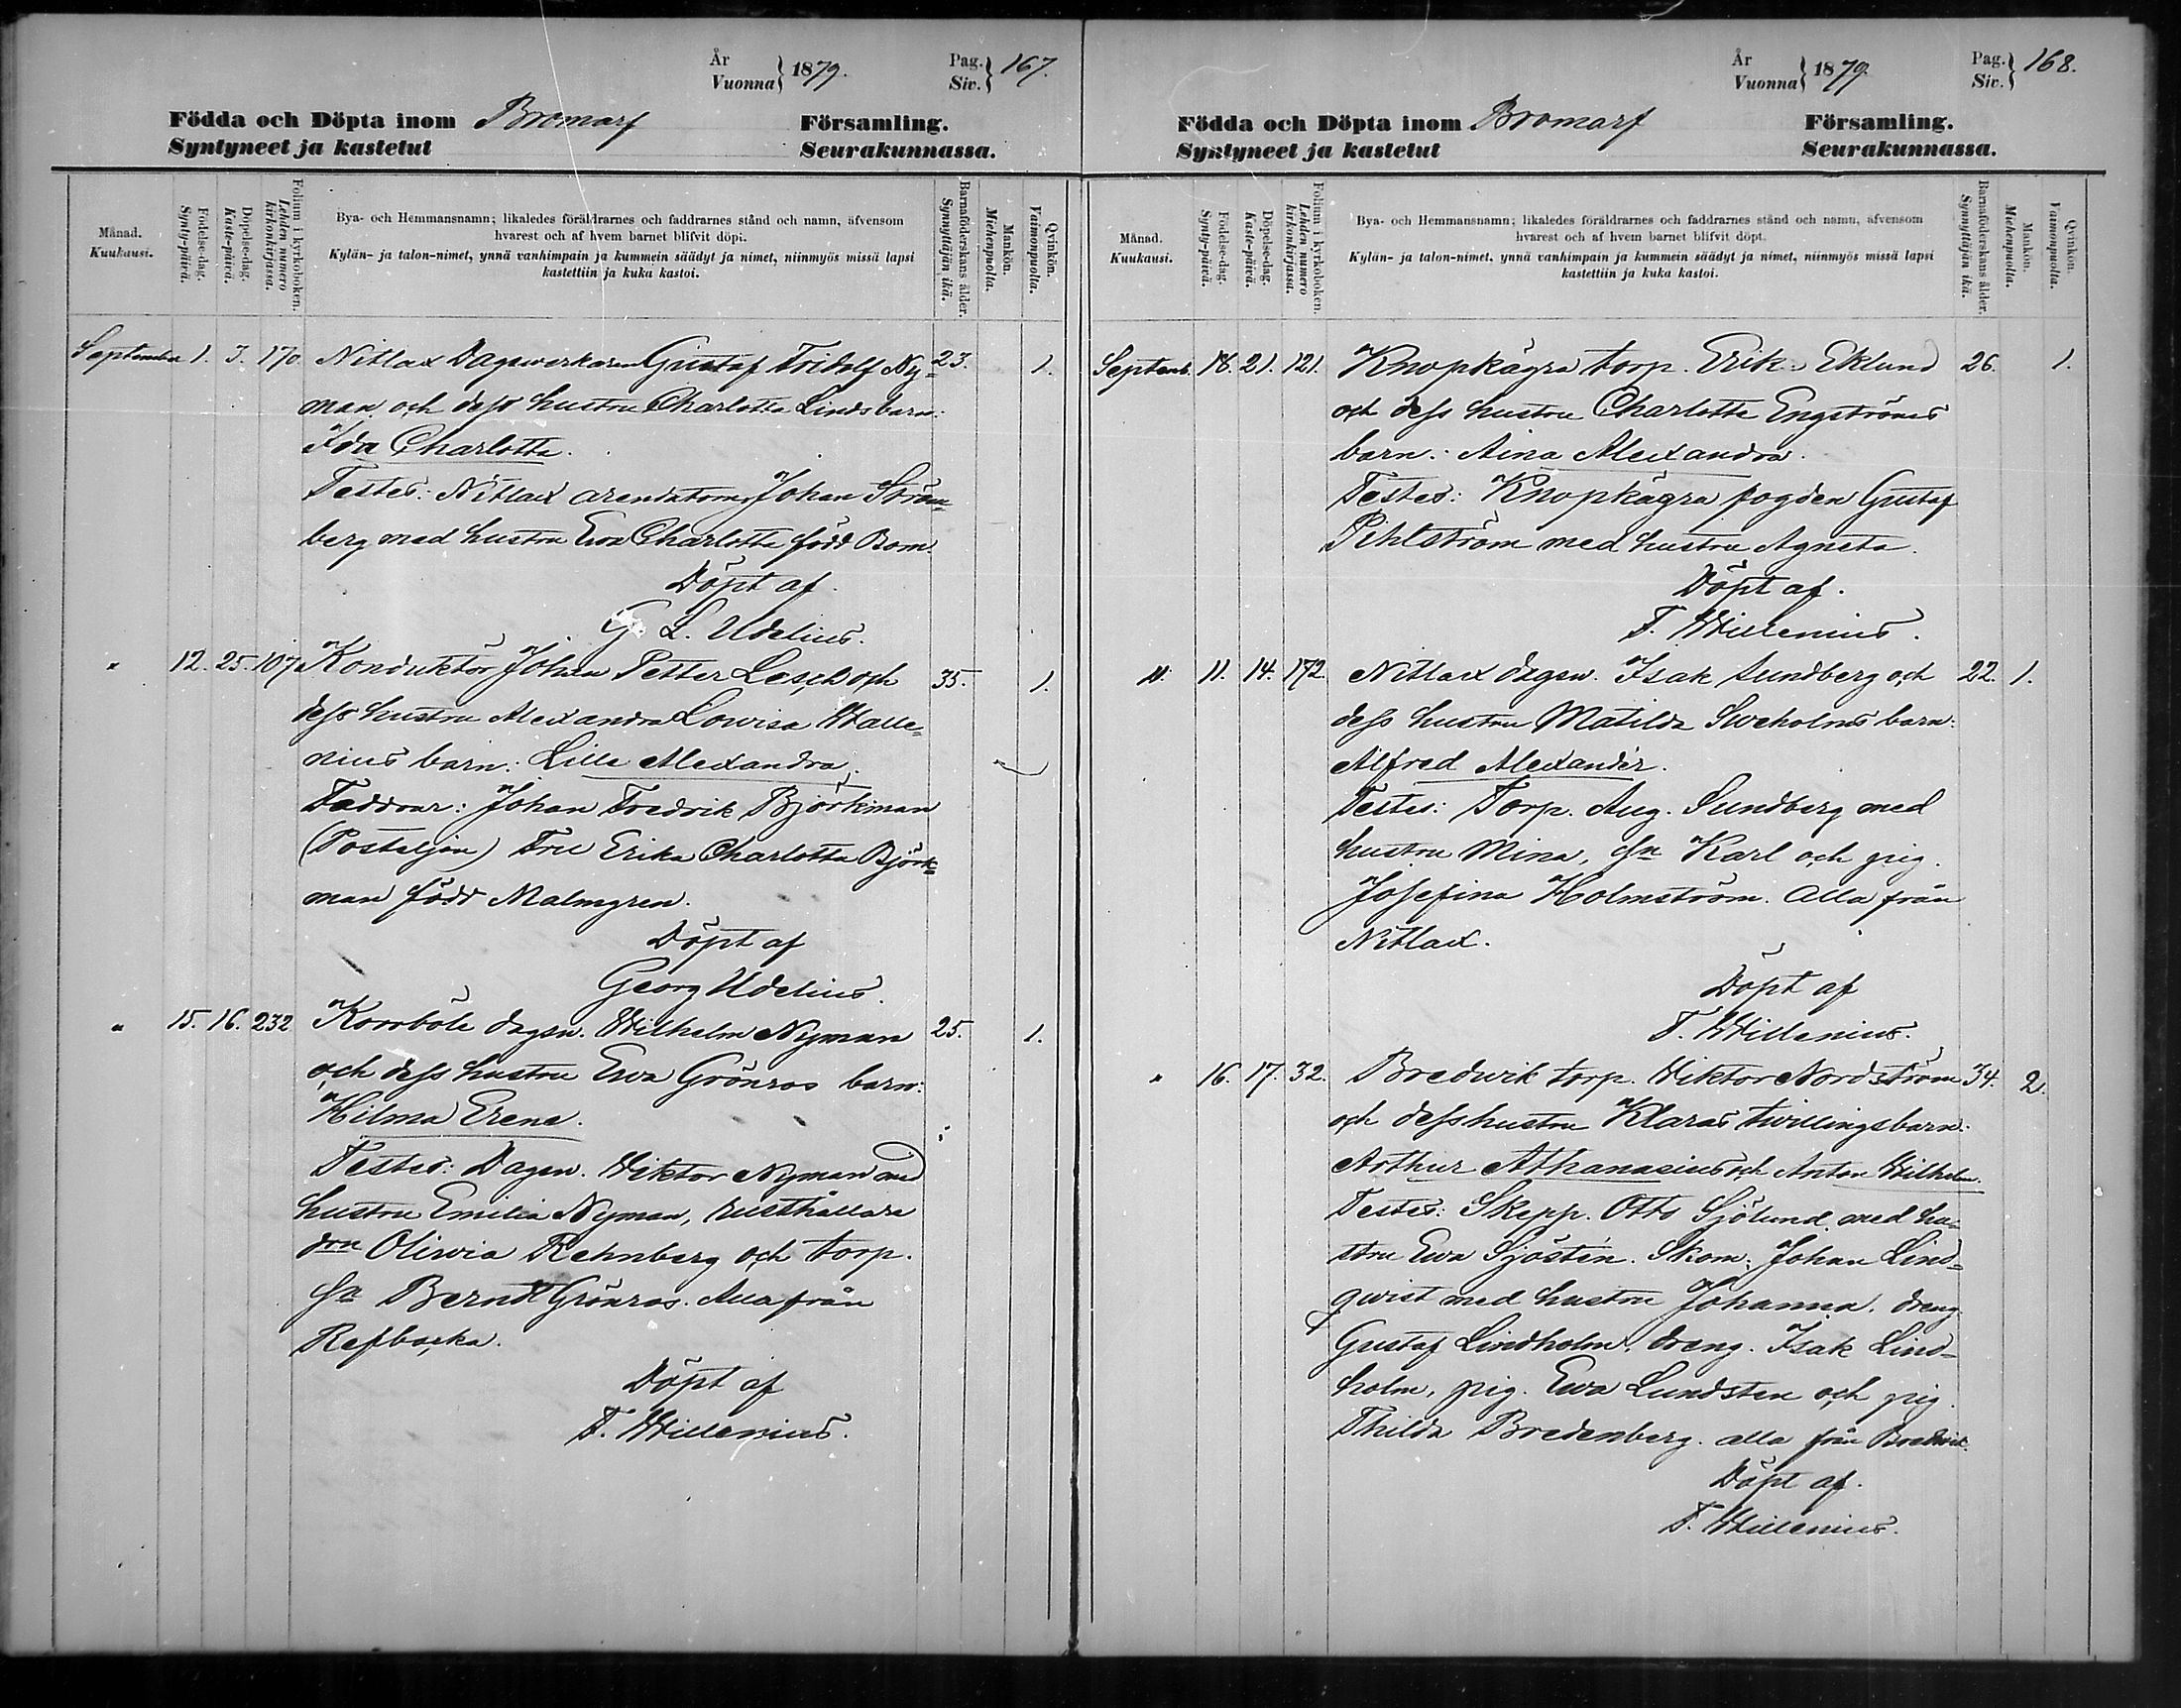 År
Vuonna } 1879.
Pag.
Siv. } 167.
Födda och Döpta inom Bromarf Församling.
Syntyneet ja kastetut Seurakunnassa.
Månad.
Kuukausi.
Födelse-dag.
Synty-päivä.
Döpelse-dag.
Kaste-päivä.
Folium i kyrkoboken.
Lehden numero kirkonkirjassa.
Bya- och Hemmansnamn; likaledes föräldrarnes och faddrarnes stånd och namn, äfvensom
hvarest och af hvem barnet blifvit döpt.
Kylän- ja talon-nimet, ynnä vanhimpain ja kummein säädyt ja nimet, niinmyös missä lapsi
kastettiin ja kuka kastoi.
Barnaföderskans ålder.
Synnyttäjän ikä.
Mankön.
Miehenpuolta.
Qvinkön.
Vaimonpuolta.
September 1. 3. 170. Nitlax Dagswerkaren Gustaf Fridolf Ny= 23. 1.
man och dess hustru Charlotta Linds barn:
Ida Charlotta.
Testes: Nitlax arendatorn Johan Ström=
berg med hustru Eva Charlotta född Bom.
Döpt af
G. L. Udelius.
" 12. 25. 107 Konduktör Johan Petter Lesch och 35. 1.
dess hustru Alexandra Lowisa Walle=
nius barn: Lille Alexandra.
Faddrar: Johan Fredrik Björkman
(Postiljon) Fru Erika Charlotta Björk=
man född Malmgren.
Döpt af
Georg Udelius.
" 15. 16. 232 Korrböle dagsw. Wilhelm Nyman 25. 1.
och dess hustru Ewa Grönros barn:
Hilma Erene.
Testes: Dagsw. Wiktor Nyman med
hustru Emilia Nyman, rusthållare
dru Oliwia Rehnberg och torp.
sn Berndt Grönros. Alla från
Refbacka.
Döpt af
F. Willenius.
År
Vuonna } 1879.
Pag.
Siv. } 168.
Födda och Döpta inom Bromarf Församling.
Syntyneet ja kastetut Seurakunnassa.
Månad.
Kuukausi.
Födelse-dag.
Synty-päivä.
Döpelse-dag.
Kaste-päivä.
Folium i kyrkoboken.
Lehden numero kirkonkirjassa.
Bya- och Hemmansnamn; likaledes föräldrarnes och faddrarnes stånd och namn, äfvensom
hvarest och af hvem barnet blifvit döpt.
Kylän- ja talon-nimet, ynnä vanhimpain ja kummein säädyt ja nimet, niinmyös missä lapsi
kastettiin ja kuka kastoi.
Barnaföderskans ålder.
Synnyttäjän ikä.
Mankön.
Miehenpuolta.
Qvinkön.
Vaimonpuolta.
Septemb. 18. 21. 121. Knopkägra torp. Erik Eklund 26. 1.
och dess hustru Charlotta Engströms
barn: Aina Alexandra.
Testes: Knopkägra fogden Gustaf
Pihlström med hustru Agneta.
Döpt af
F. Willenius.
" 11. 14. 172. Nitlax dagsw. Isak Sundberg och 22. 1.
dess hustru Matilda Sweholms barn:
Alfred Alexander.
Testes: Torp. Aug. Sundberg med
hustru Mina, sn Karl och pig.
Josefina Holmström. Alla från
Nitlax.
Döpt af
F. Willenius.
" 16. 17. 32. Bredwik torp. Wiktor Nordström 34. 2.
och dess hustru Klaras twillingsbarn:
Arthur Athanasius och Anton Wilhelm.
Testes: Skepp. Otto Sjölund med hu=
stru Ewa Sjösten. Skom. Johan Lind=
qwist med hustru Johanna, dreng
Gustaf Lindholm, dreng. Isak Lind=
holm, pig. Ewa Lundsten och pig.
Thilda Bredenberg. alla från Bredwik.
Döpt af
F. Willenius.